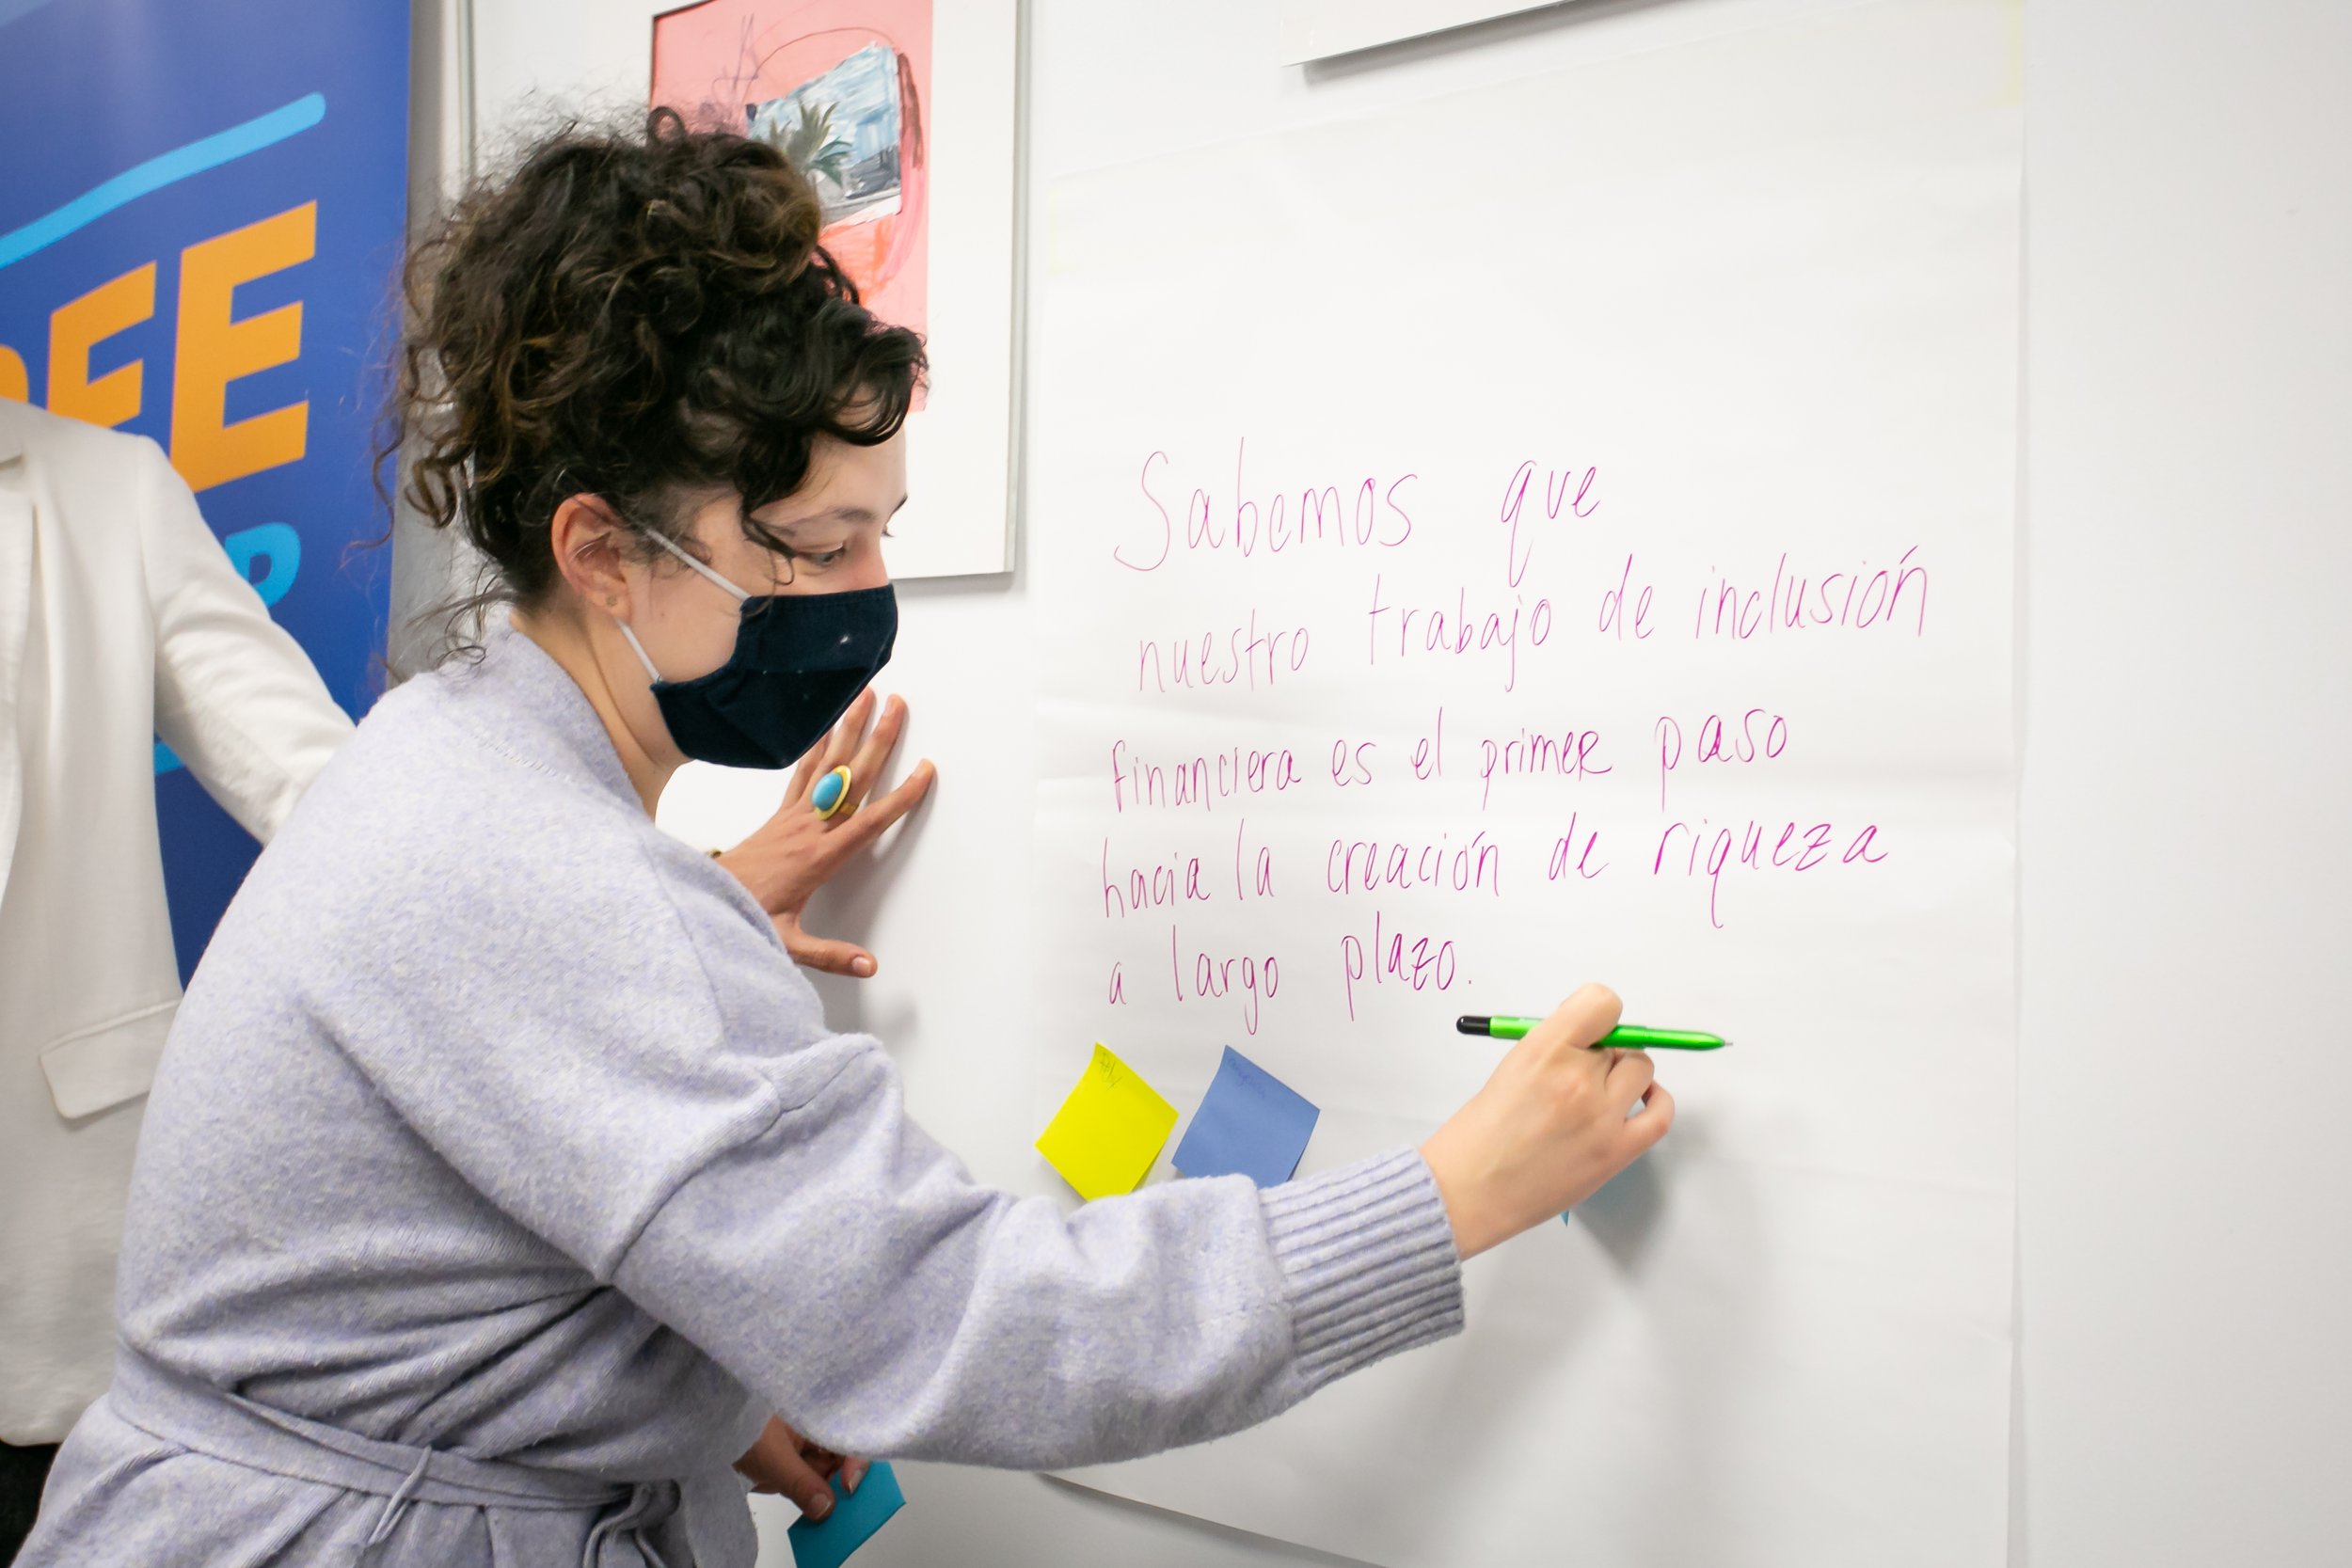 Sabemos que
nuestro trabajo de inclusión
financiera es el primer paso
hacia la creación de riqueza
a largo plazo.